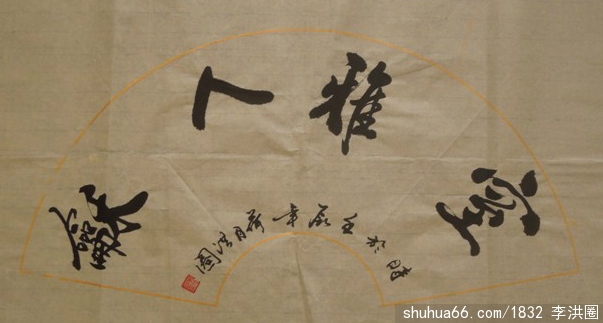 室雅人龢
時於壬辰年荷月洪圈
shuhua66.com/1832 李洪圈